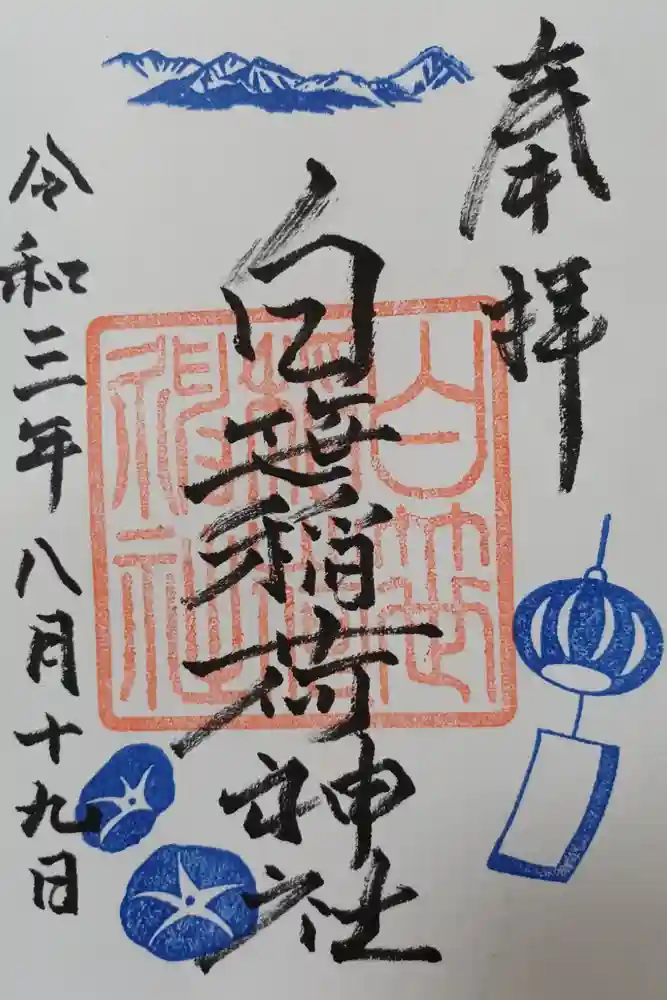 奉拝
白笹稲荷神社
白笹
稲荷
神社
令和三年八月十九日